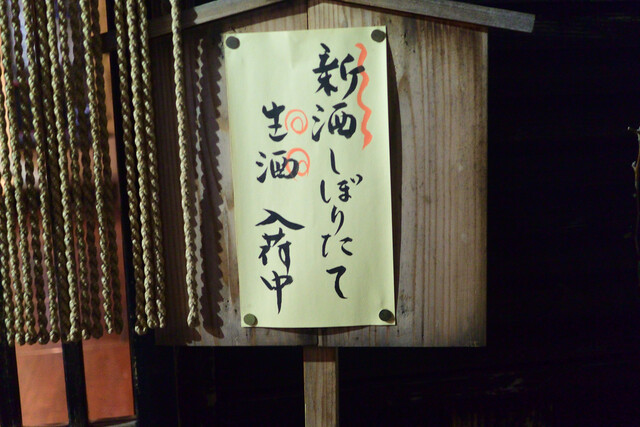 新酒しぼりたて
生酒 入荷中